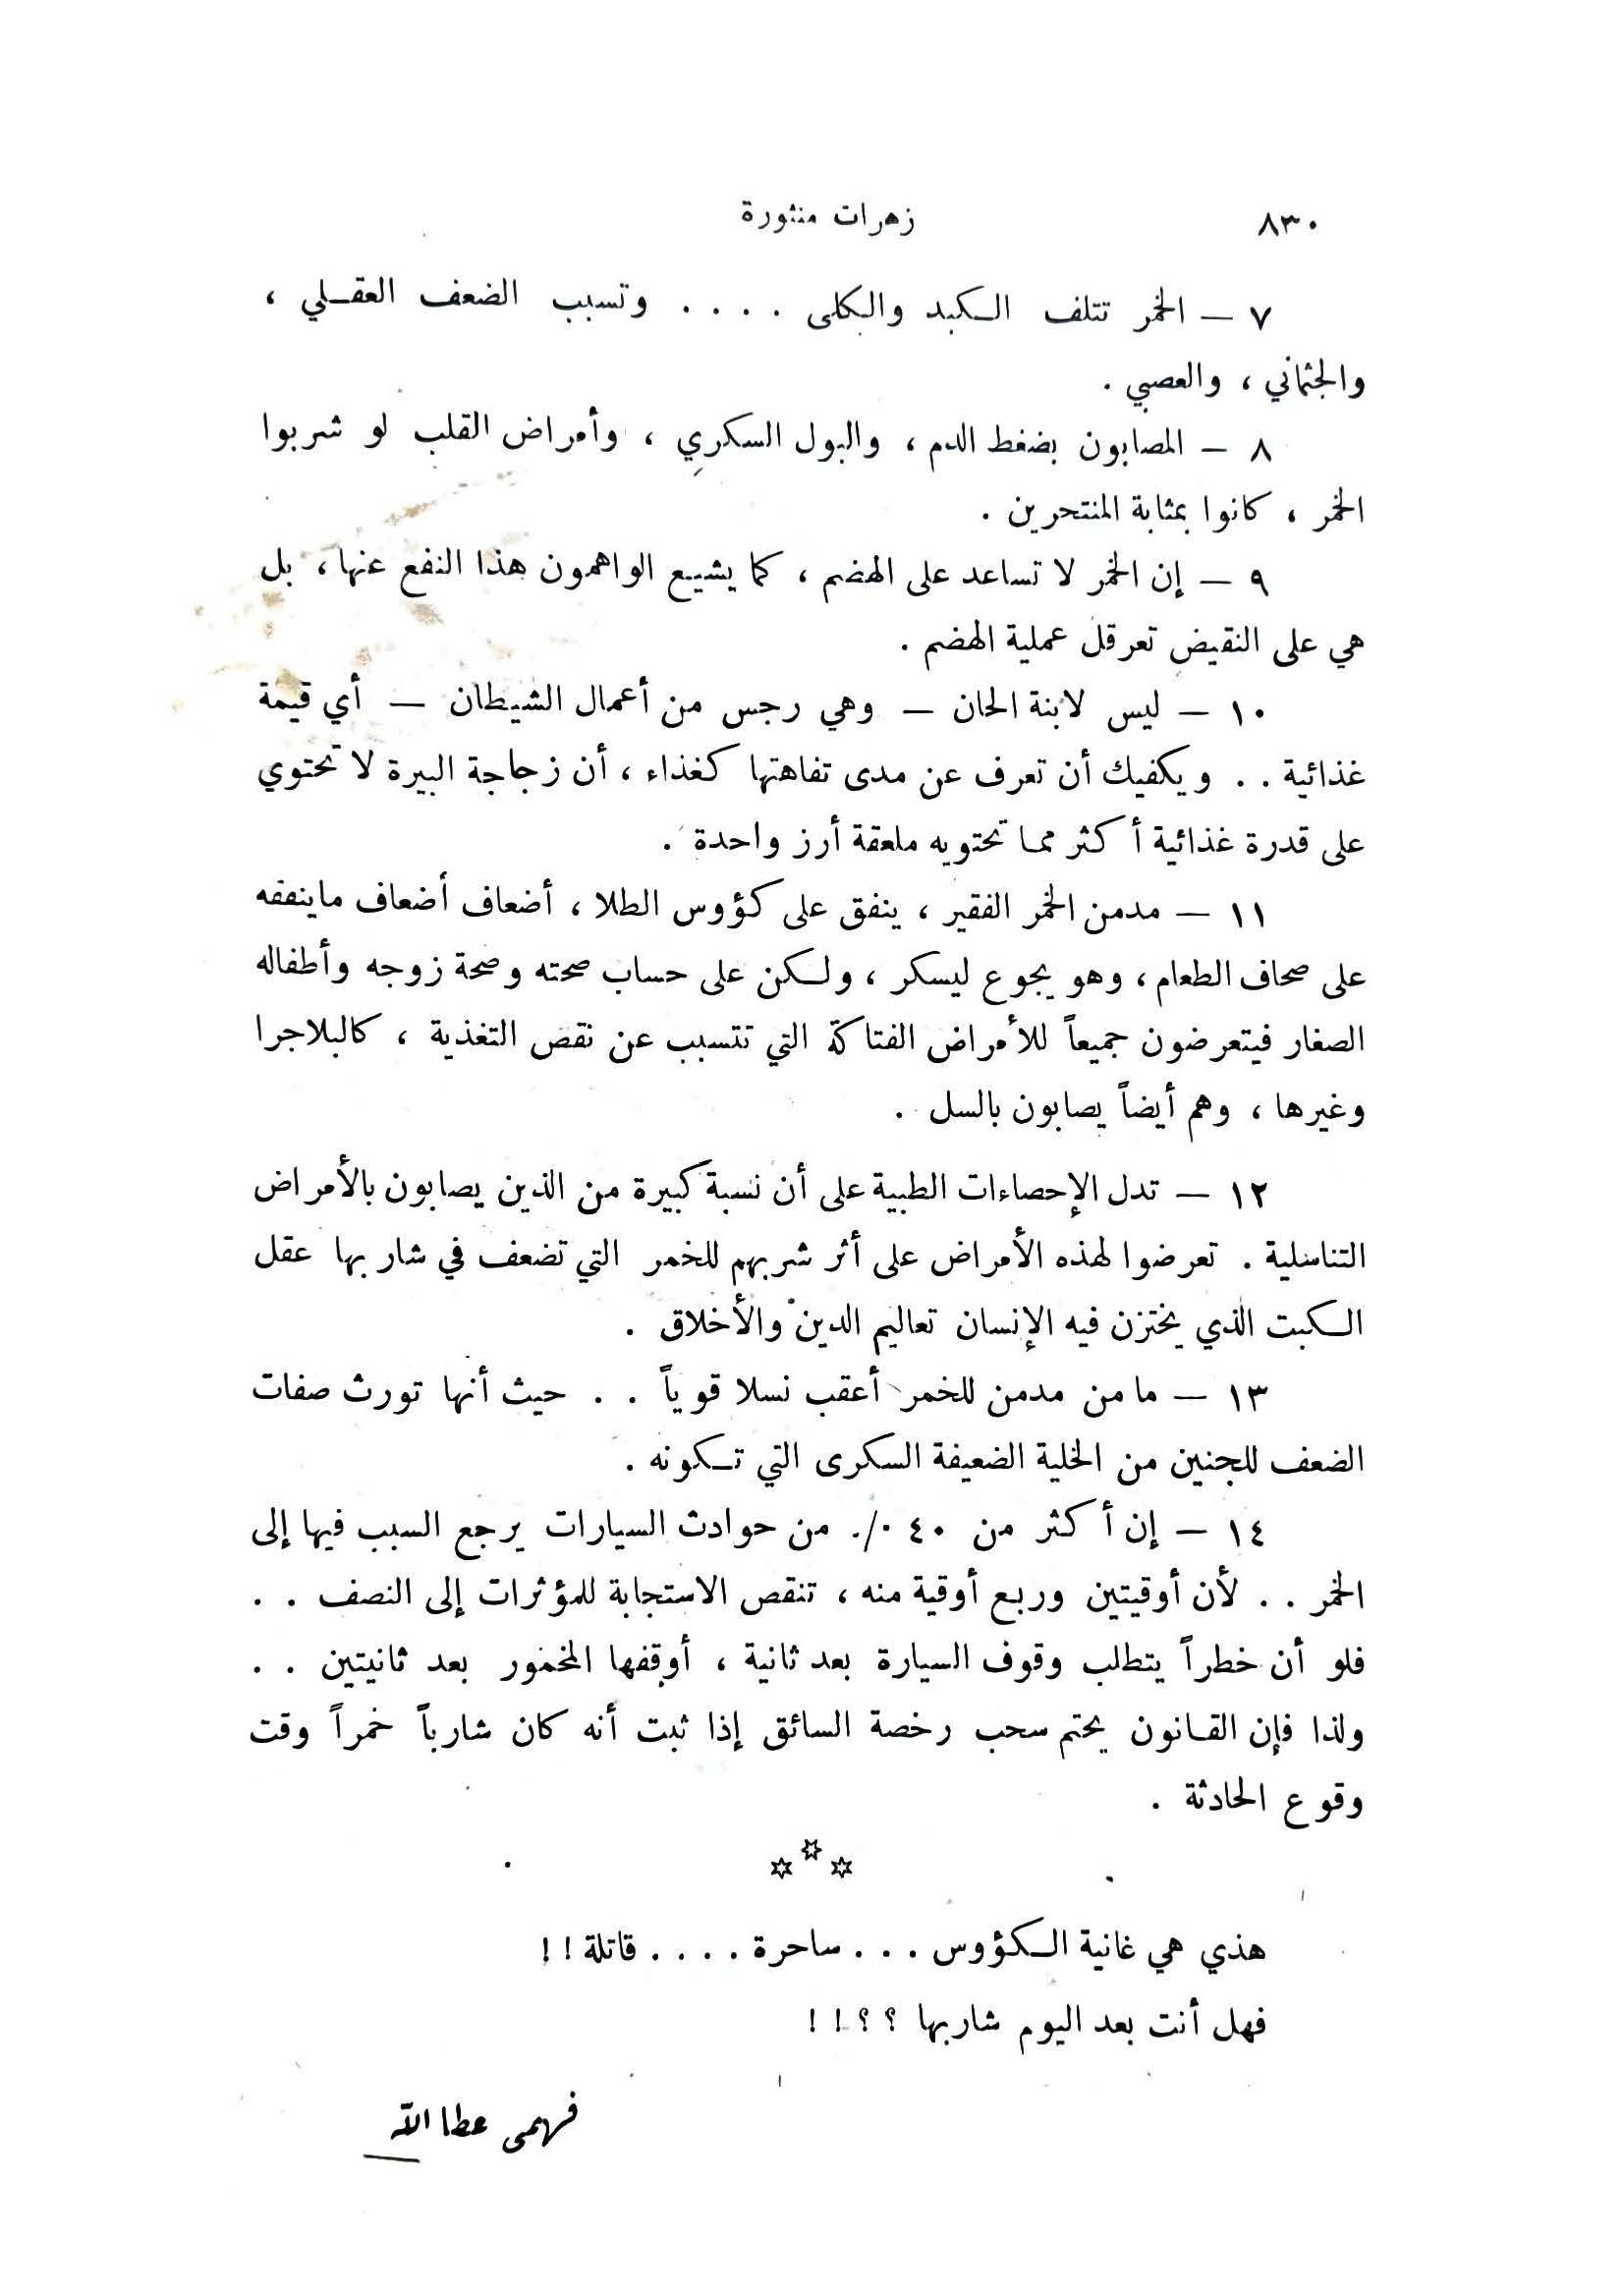 ٨٣٠ زهرات منثورة
٧ — الخمر تتلف الكبد والكلى . . . . وتسبب الضعف العقلي ،
والجثماني ، والعصبي .
٨ — المصابون بضغط الدم ، والبول السكري ، وأمراض القلب لو شربوا
الخمر ، كانوا بمثابة المنتحرين .
٩ — إن الخمر لا تساعد على الهضم ، كما يشيع الواهمون هذا النفع عنها ، بل
هي على النقيض تعرقل عملية الهضم .
١٠ — ليس لابنة الحان — وهي رجس من أعمال الشيطان — أي قيمة
غذائية . . ويكفيك أن تعرف عن مدى تفاهتها كغذاء ، أن زجاجة البيرة لا تحتوي
على قدرة غذائية أكثر مما تحتويه ملعقة أرز واحدة .
١١ — مدمن الخمر الفقير ، ينفق على كؤوس الطلا ، أضعاف أضعاف ماينفقه
على صحاف الطعام ، وهو يجوع ليسكر ، ولكن على حساب صحته وصحة زوجه وأطفاله
الصغار فيتعرضون جميعاً للأمراض الفتاكة التي تتسبب عن نقص التغذية ، كالبلاجرا
وغيرها ، وهم أيضاً يصابون بالسل .
١٢ — تدل الإحصاءات الطبية على أن نسبة كبيرة من الذين يصابون بالأمراض
التناسلية . تعرضوا لهذه الأمراض على أثر شربهم للخمر التي تضعف في شاربها عقل
الكبت الذي يختزن فيه الإنسان تعاليم الدين والأخلاق .
١٣ — ما من مدمن للخمر أعقب نسلا قوياً . . حيث أنها تورث صفات
الضعف للجنين من الخلية الضعيفة السكرى التي تكونه .
١٤ — إن أكثر من ٤٠ ./· من حوادث السيارات يرجع السبب فيها إلى
الخمر . . لأن أوقيتين وربع أوقية منه ، تنقص الاستجابة للمؤثرات إلى النصف . .
فلو أن خطراً يتطلب وقوف السيارة بعد ثانية ، أوقفها المخمور بعد ثانيتين . .
ولذا فإن القانون يحتم سحب رخصة السائق إذا ثبت أنه كان شارباً خمراً وقت
وقوع الحادثة .
هذي هي غانية الكؤوس . . . ساحرة . . . . قاتلة ! !
فهل أنت بعد اليوم شاربها ؟ ؟ ! !
فهمى عطا الله